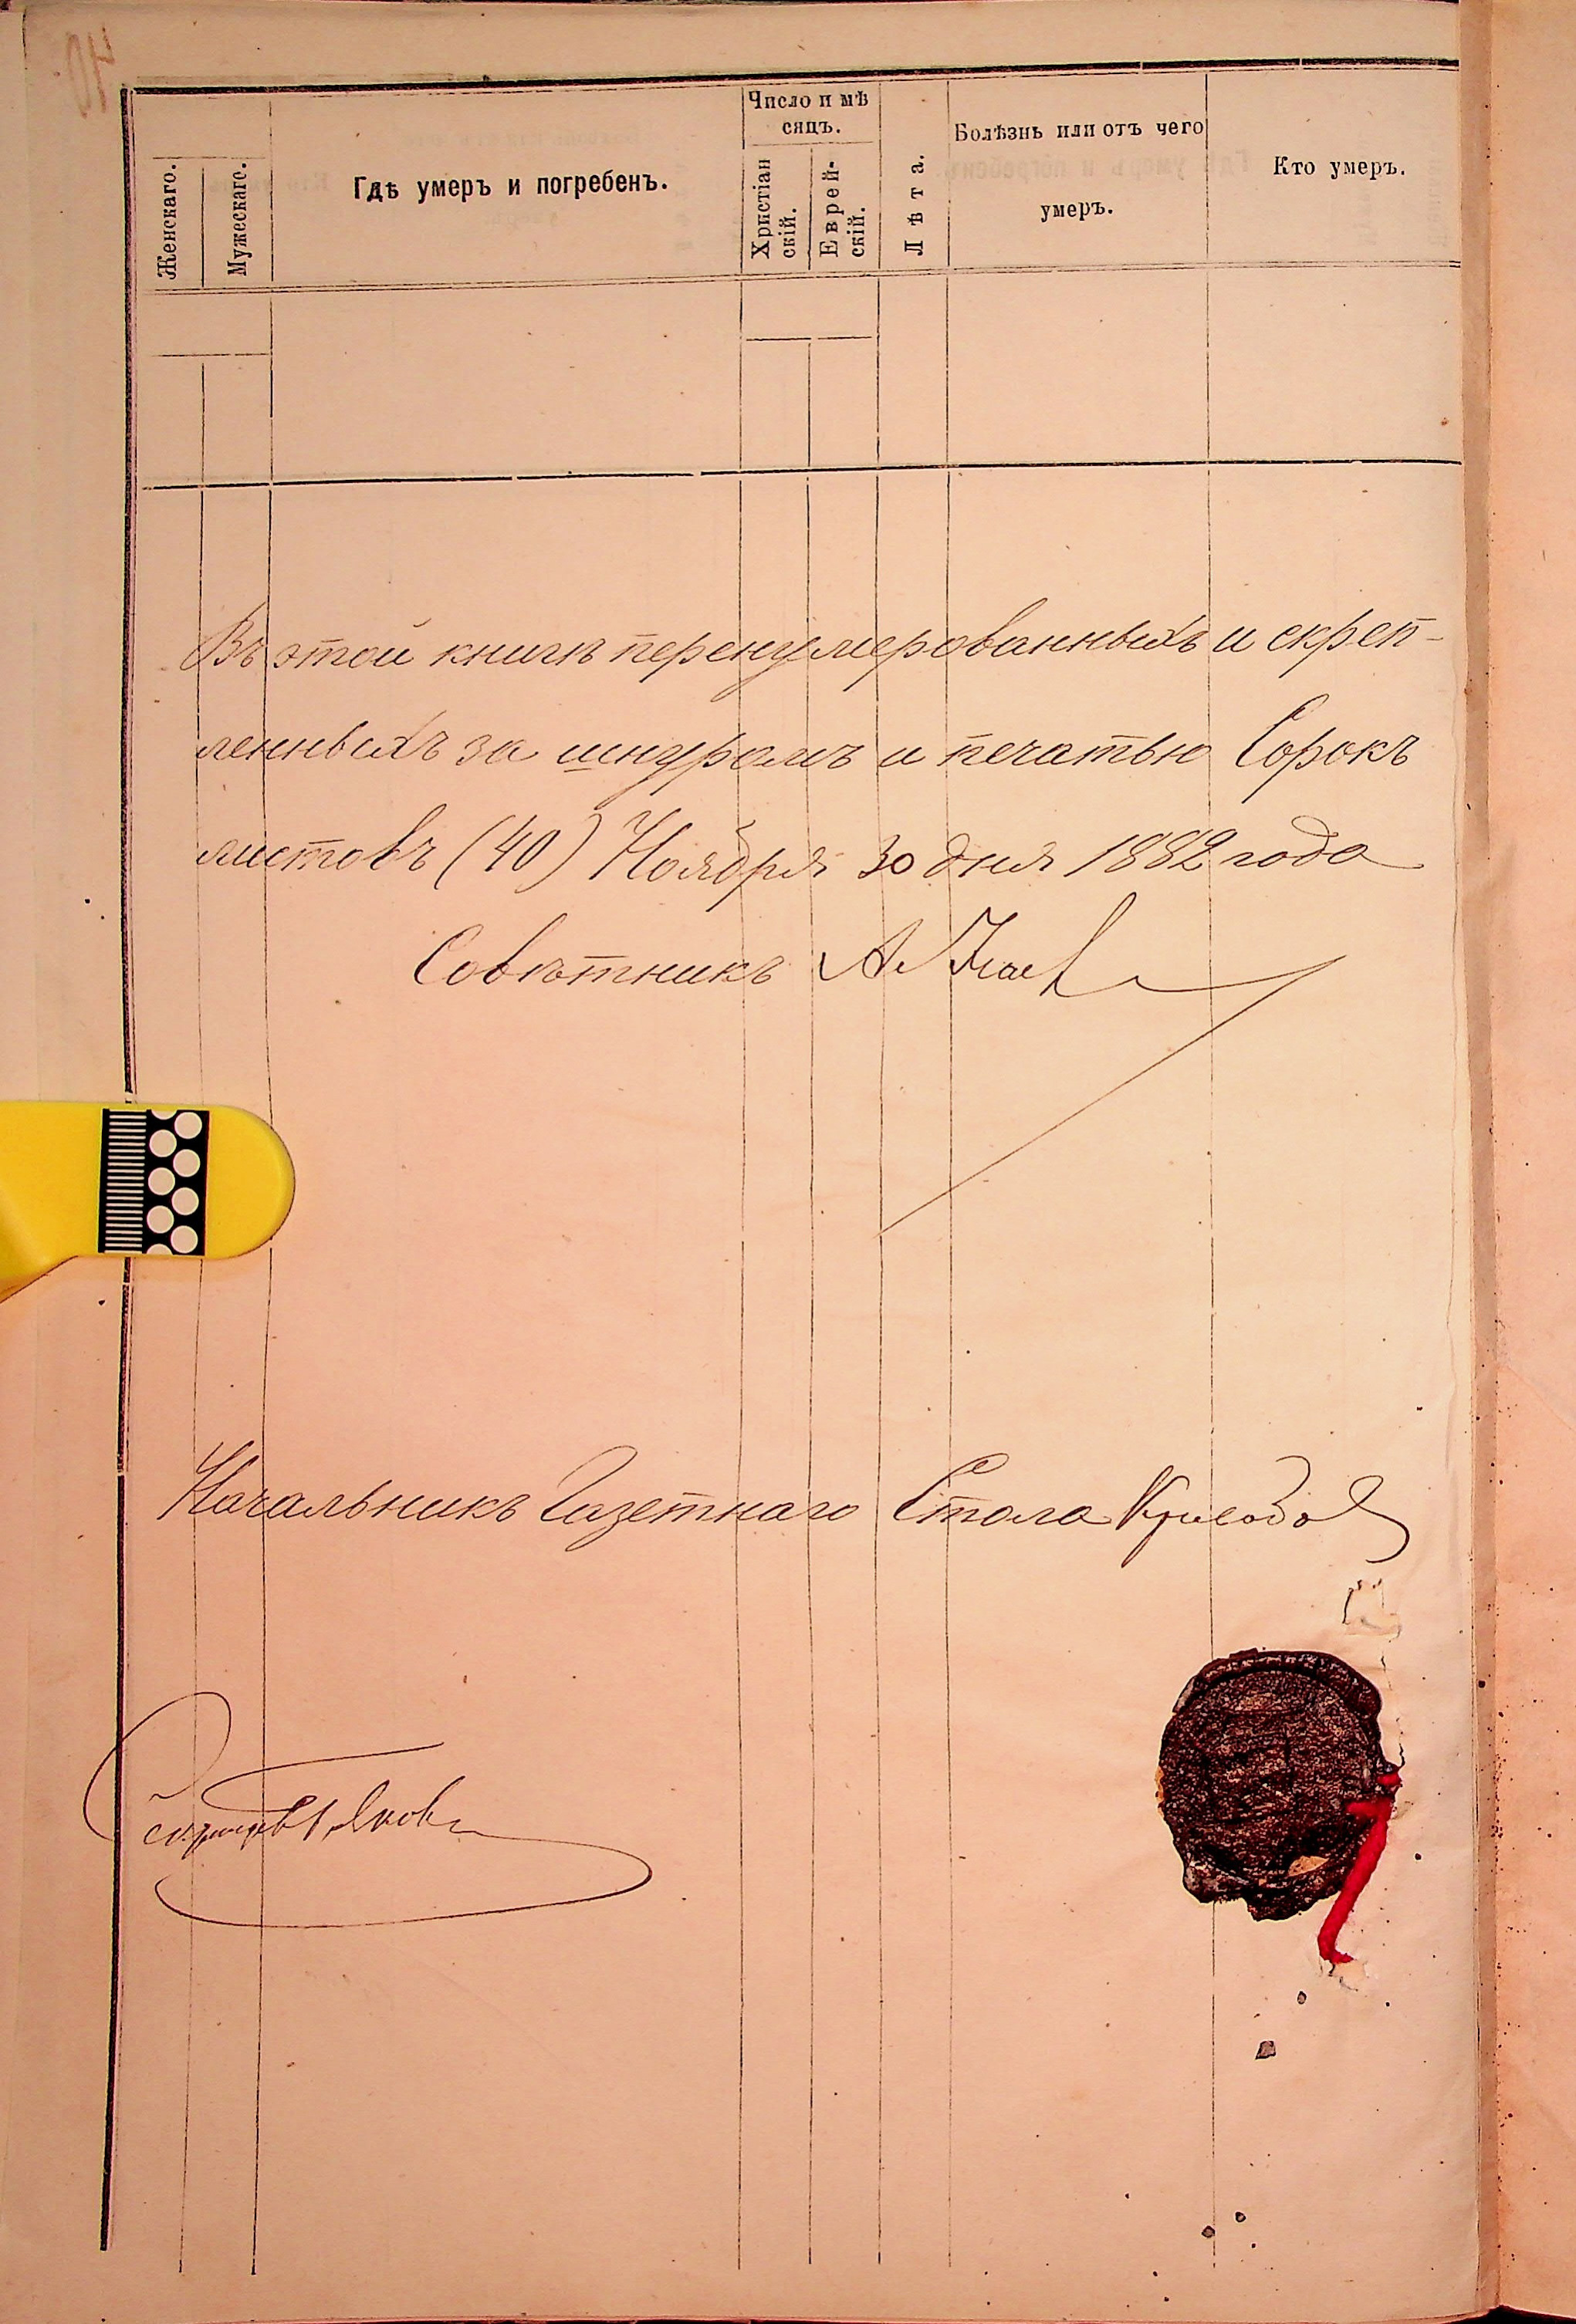 Женскаго.
Мужескаго.
Гдѣ умеръ и погребенъ.
Число и мѣ
сяцъ.
Христіан
скій.
Еврей-
скій.
Лѣта.
Болѣзнь или отъ чего
умеръ.
Кто умеръ.
Въ этой книгѣ перенумерованныхъ и скреп-
ленныхъ за шнуромъ и печатью Сорокъ
листовъ (40) Ноября 30 дня 1882 года
Совѣтникъ А.
Начальникъ Газетнаго Стола